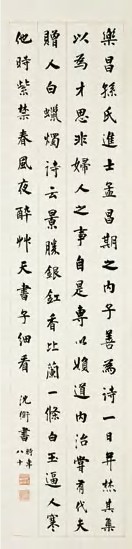 樂昌孫氏進士孟昌期之内子善為詩一日并焚其集
以為才思非婦人之事自是專以婦道内治嘗有代夫
贈人白蠟燭詩云景勝銀釭香比蘭一條白玉逼人寒
他時紫禁春風夜醉艸天書子細看
沈衛書
時年
八十